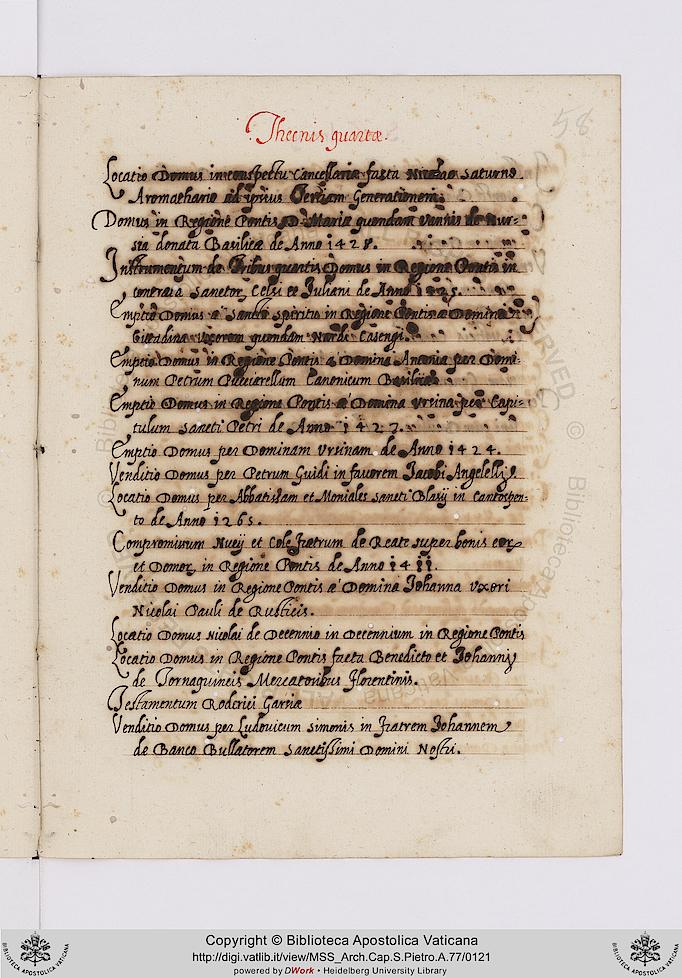 58
Thecnis quartæ.
Locatio Domus in conspectu Cancellariæ facta Nicolao Saturno
Aromathario ad ipsius Tertiam Generationem.
Domus in Regione Pontis D. Mariæ quondam Vannis de Nur-
sia donata Basilicæ de Anno 1428.
Instrumentum de Tribus quartis Domus in Regione Pontis in
contrata Sanctor, Celsi et Juliani de Anno
Emptio Domus a Sancti Spiritus in Regione Pontis a Domina
Cittadina Uxorem quondam Nardi Casengi.
Emptio Domus in Regione Pontis a Domina Antonia per Domi-
num Petrum Canonicum Basilicæ
Emptio Domus in Regione Pontis a Domina Ursina per Capi-
tulum Sancti Petri de Anno 1427.
Emptio Domus per Dominam Ursinam de Anno 1424.
Venditio Domus per Petrum Guidi in favorem Jacobi Angelelli.
Locatio Domus per Abbatissam et Moniales Sancti Blasij in Cantospon-
to de Anno 1265.
Compromissum Nueij et Cole fratrum de Reate super bonis eor
et Domor, in Regione Pontis de Anno 1411.
Venditio Domus in Regione Pontis a Domina Johanna Uxori
Nicolai Pauli de Rusticis.
Locatio Domus Nicolai de Decennio in Decennium in Regione Pontis
Locatio Domus in Regione Pontis facta Benedicto et Johannis
de Tornaquineis Mercatoribus Florentinis.
Testamentum Roderici Garsiæ
Venditio Domus per Ludovicum Simonis in fratrem Johannem
de Banco Bullatorem Sanctissimi Domini Nostri.
Copyright © Biblioteca Apostolica Vaticana
http://digi.vatlib.it/view/MSS_Arch.Cap.S.Pietro.A.77/0121
powered by DWork • Heidelberg University Library